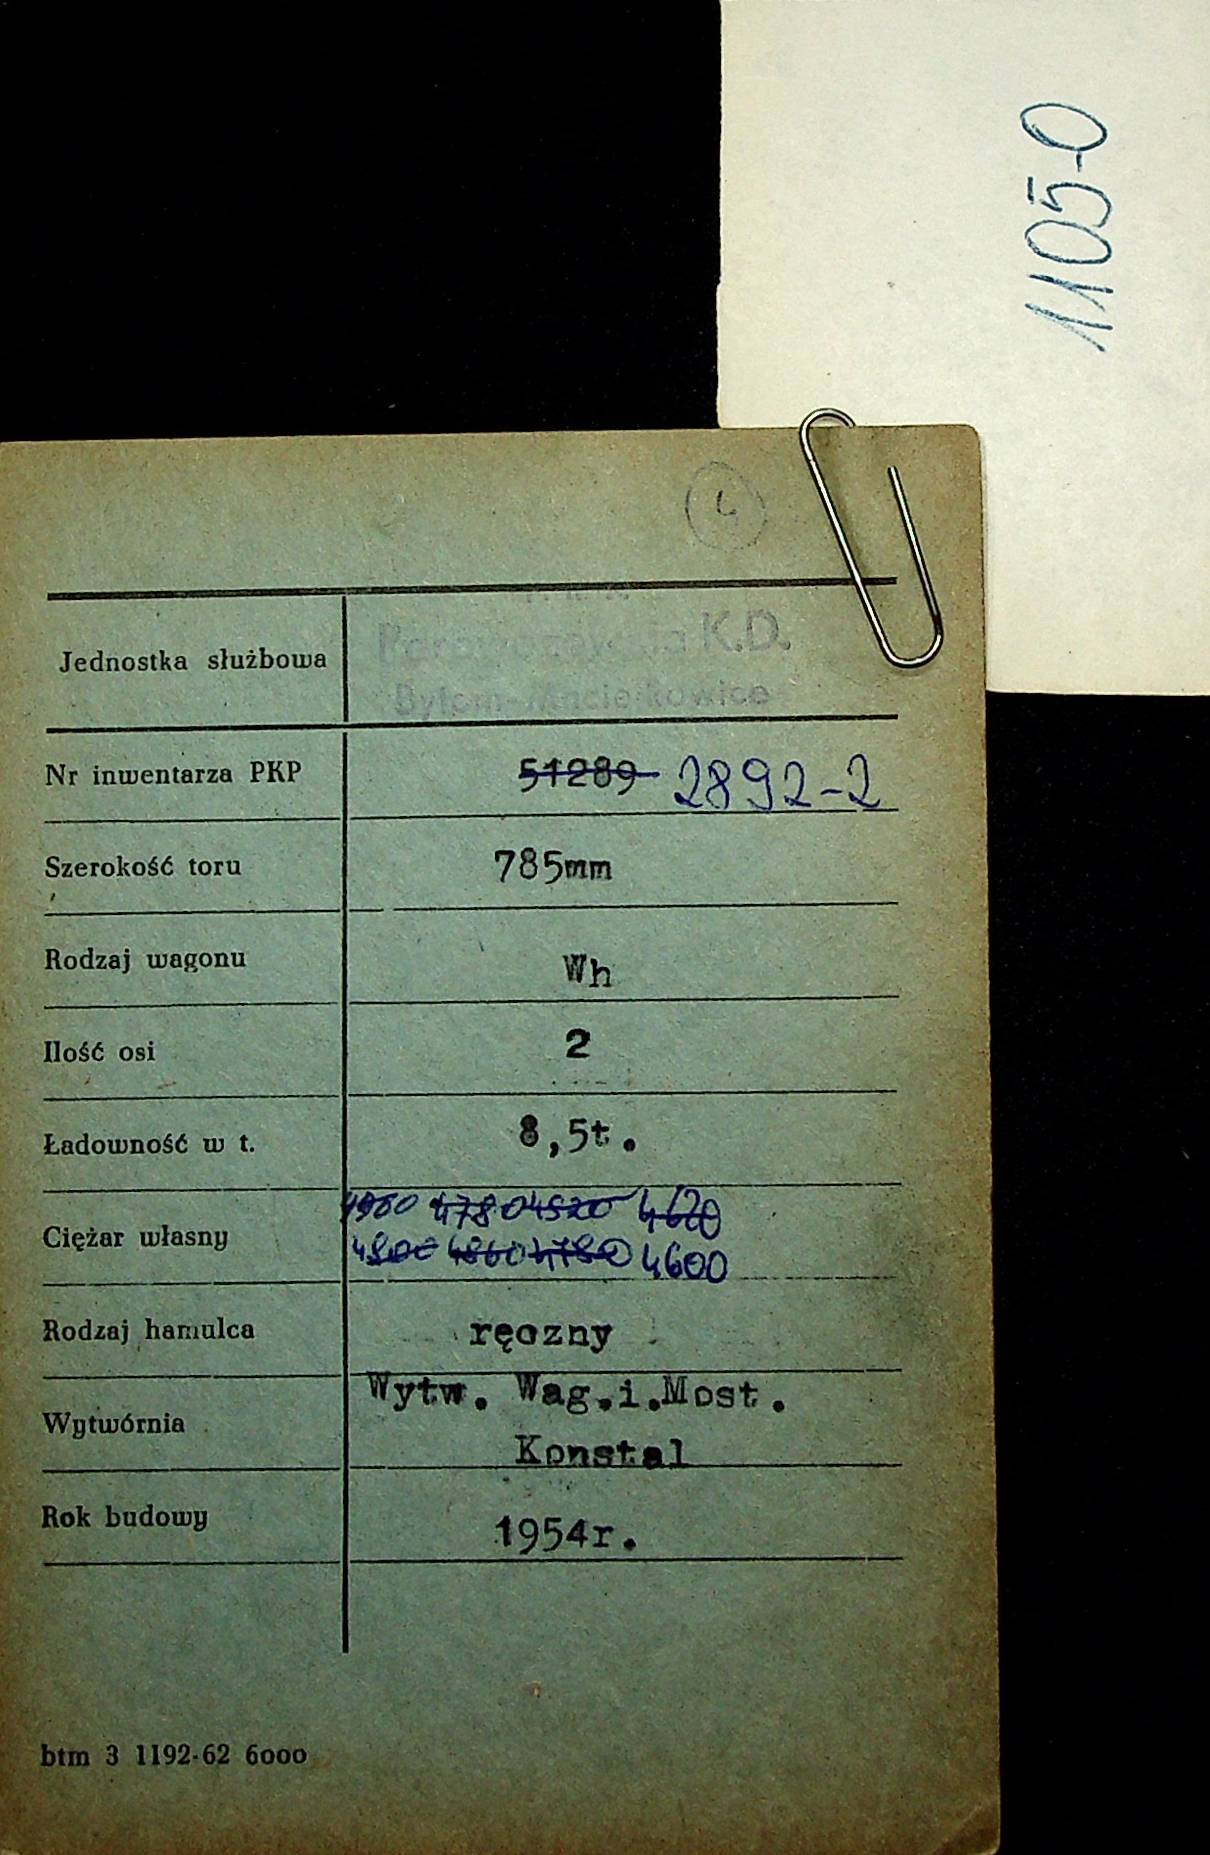 1105-0
4
Jednostka służbowa
Parowozownia K.D.
Bytom-Maciejkowice
Nr inwentarza PKP 51289 2892-2
Szerokość toru 785mm
Rodzaj wagonu Wh
Ilość osi 2
Ładowność w t. 8,5t.
4780 4520 4620
Ciężar własny
4800 4860 4780 4600
Rodzaj hamulca ręczny
Wytw. Wag.i.Most.
Wytwórnia
Konstal
Rok budowy 1954r.
btm 3 1192-62 6000